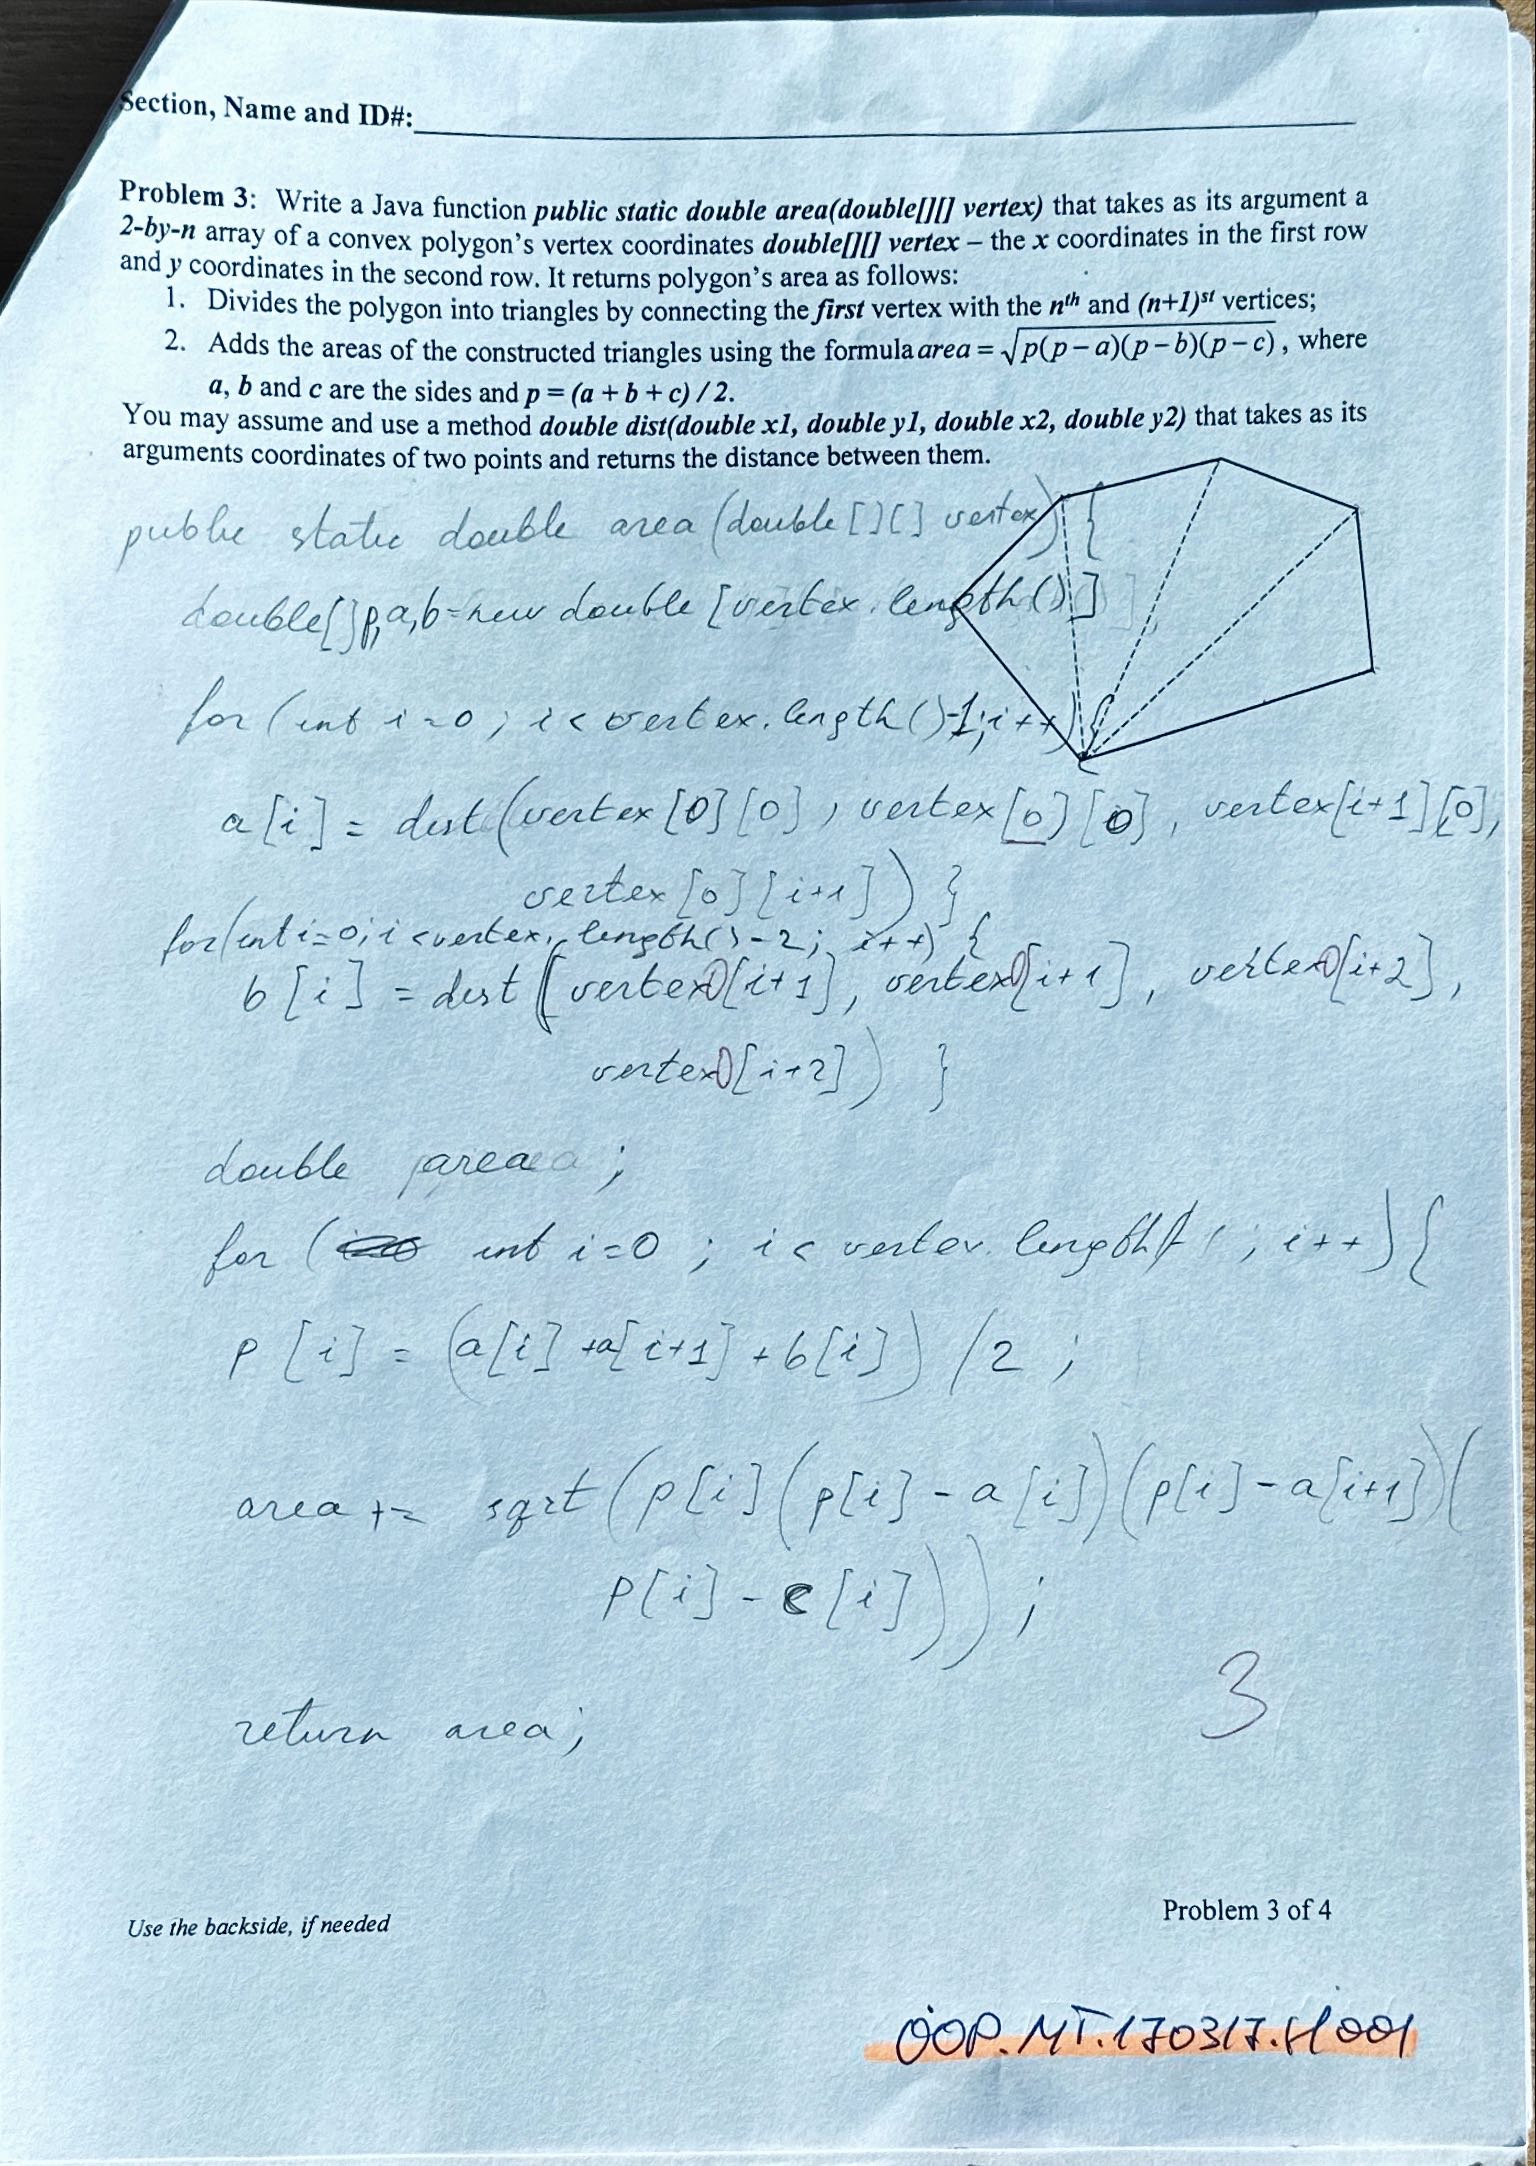 Section, Name and ID#:
Problem 3: Write a Java function public static double area(double[][] vertex) that takes as its argument a
2-by-n array of a convex polygon's vertex coordinates double[][] vertex – the x coordinates in the first row
and y coordinates in the second row. It returns polygon's area as follows:
1. Divides the polygon into triangles by connecting the first vertex with the nth and (n+1)st vertices;
2. Adds the areas of the constructed triangles using the formula area = √p(p – a)(p – b)(p – c), where
a, b and c are the sides and p = (a + b + c) / 2.
You may assume and use a method double dist(double x1, double y1, double x2, double y2) that takes as its
arguments coordinates of two points and returns the distance between them.
public static double area (double [][] vertex) {
double[] p,a,b=new double [vertex.length()]
for (int i=0; i< vertex.length()-1; i++) {
a[i] = dist(vertex[0][0], vertex[0][0], vertex[i+1][0],
vertex[0][i+1]) }
for(int i=0; i<vertex.length()-2; i++) {
b[i] = dist (vertex[i+1], vertex[i+1], vertex[i+2],
vertex[i+2]) }
double area;
for ( int i=0 ; i< vertex.length ; i++) {
p[i] = (a[i] +a[i+1] + b[i]) /2 ;
area += sqrt (p[i](p[i] - a[i])(p[i] - a[i+1])(
p[i] - c[i])) ;
return area;
3
Use the backside, if needed
Problem 3 of 4
OOP.MT.170317.H001